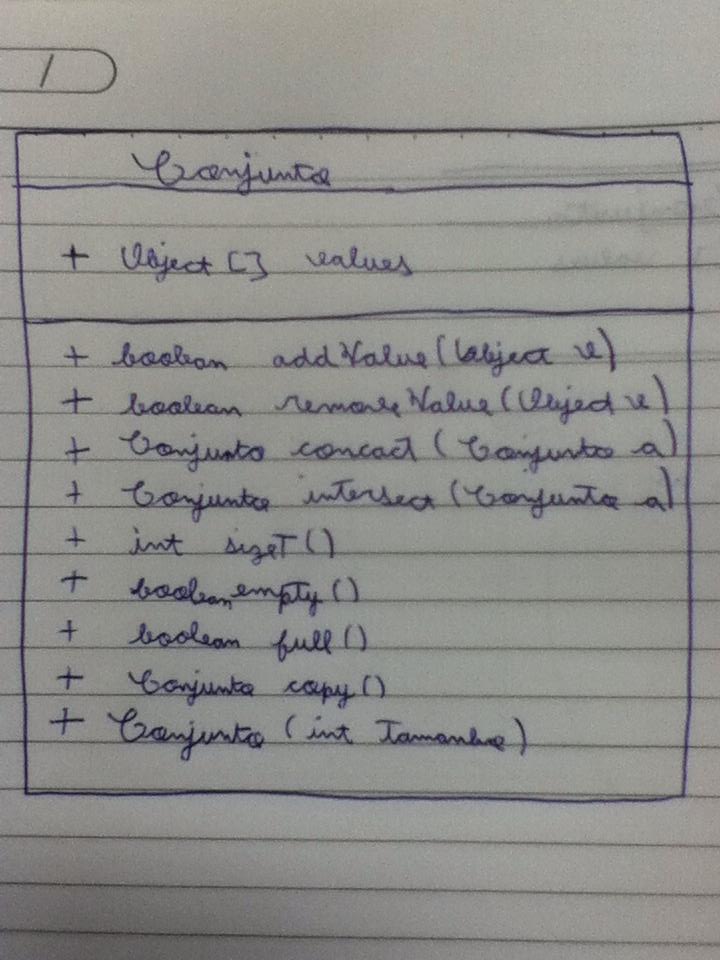 1
Conjunto
+ Object [] values
+ boolean addValue (Object v)
+ boolean removeValue (Object v)
+ Conjunto concact (Conjunto a)
+ Conjunto intersect (Conjunto a)
+ int sizeT ()
+ boolean empty ()
+ boolean full ()
+ Conjunto copy ()
+ Conjunto (int Tamanho)